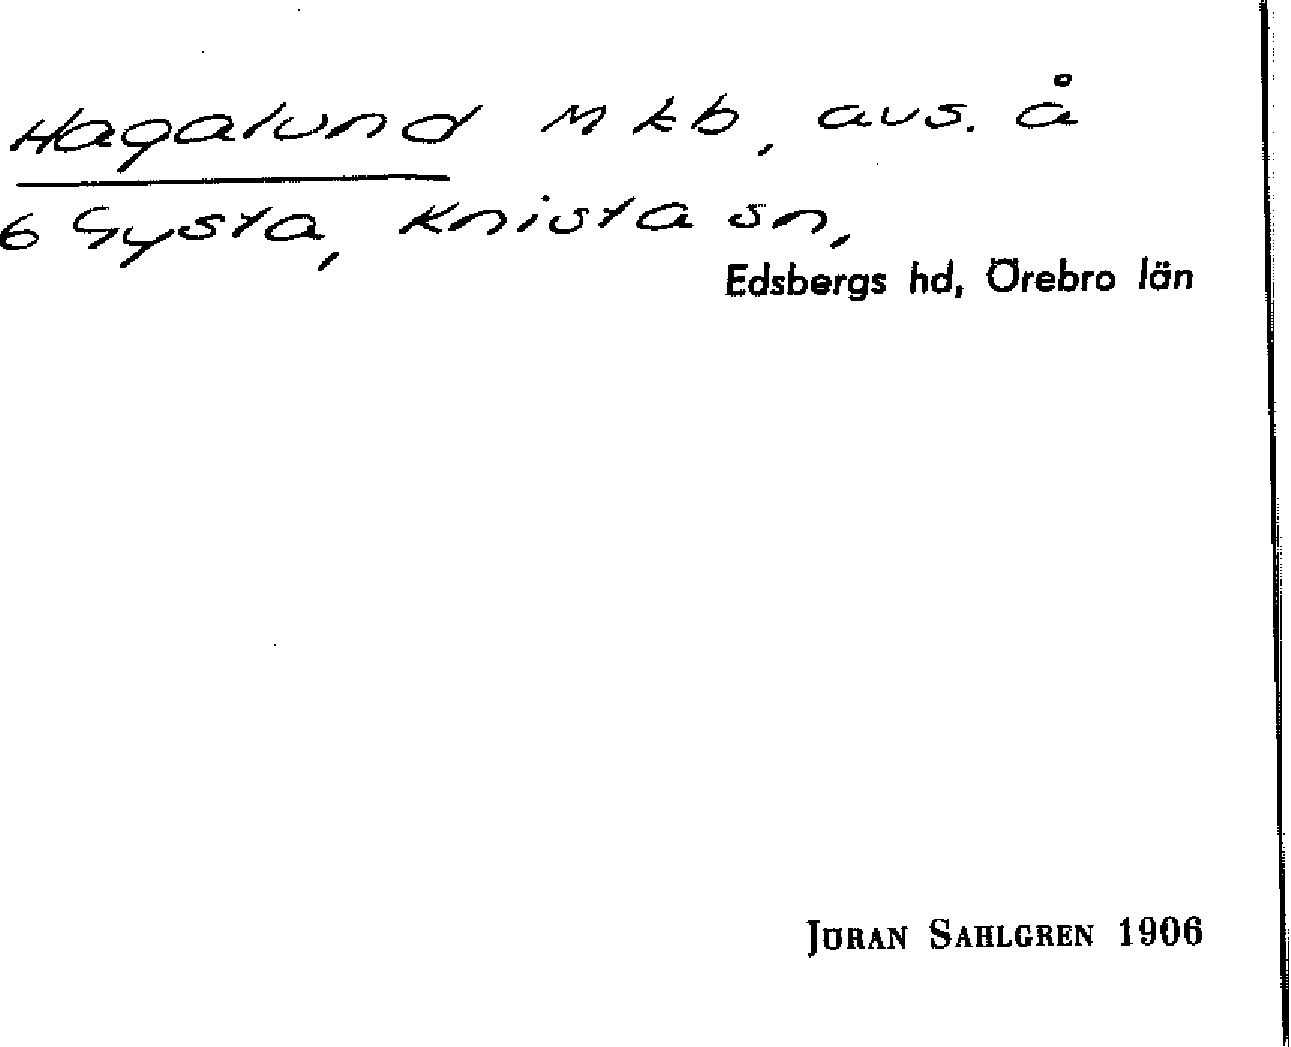 Hagalund M kb, avs. å
6 Gysta, Knista sn,
Edsbergs hd, Örebro län
JÖRAN SAHLGREN 1906